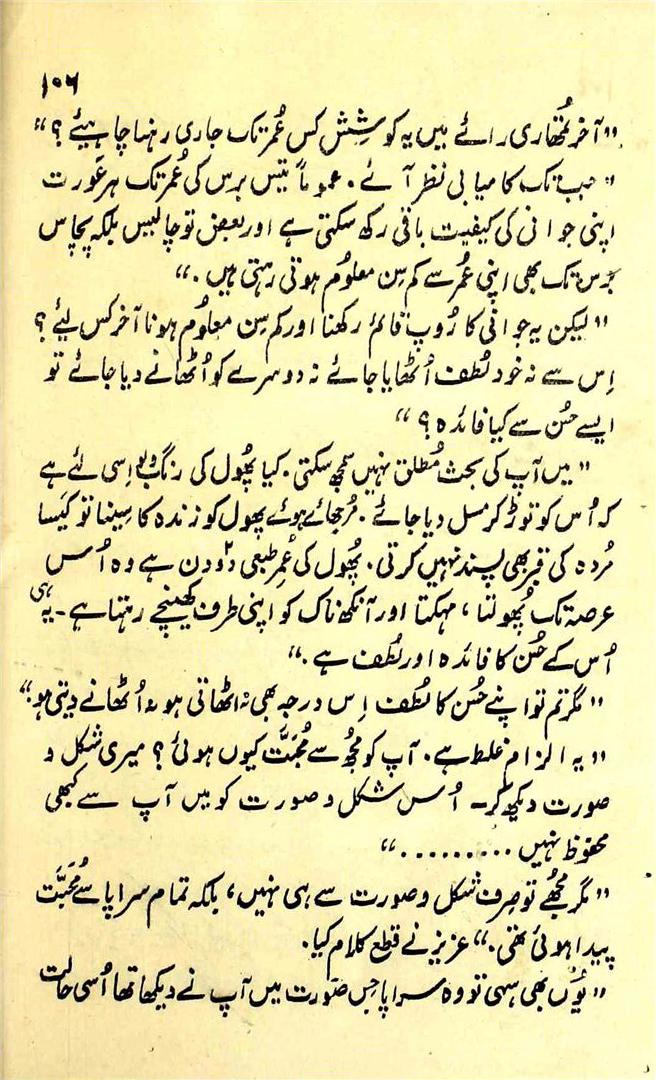 ۱۰۶
"آخر تُمھاری رائے میں یہ کوشِش کس عُمر تک جاری رہنا چاہیئے؟"
"جب تک کامیابی نظر آئے۔ عموماً تیس برس کی عُمر تک ہر عَورت
اپنی جوانی کی کیفیت باقی رکھ سکتی ہے اور بعض تو چالیس بلکہ پچاس
بَرس تک بھی اپنی عُمر سے کم سِن معلوم ہوتی رہتی ہیں۔"
"لیکن یہ جوانی کا رُوپ قائم رکھنا اور کم سِن معلُوم ہونا آخر کس لیئے؟
اِس سے نہ خود لُطف اُٹھایا جائے نہ دوسرے کو اُٹھانے دیا جائے تو
ایسے حُسن سے کیا فائدہ؟"
"میں آپ کی بحث مُطلق نہیں سمجھ سکتی۔ کیا پھُول کی رنگ و بُو اِسی لئے ہے
کہ اُس کو توڑ کر مسل دیا جائے۔ مُرجھائے ہوئے پھول کو زندہ کا سِینا تو کیَسا
مُردہ کی قبر بھی پسند نہیں کرتی۔ پھُول کی عُمرِ طبعی ۲ دو دن ہے وہ اُس
عرصہ تک پھُولتا، مہکتا اور آنکھ ناک کو اپنی طرف کھینچے رہتا ہے۔ یہ ہی
اُس کے حُسن کا فائدہ اور لُطف ہے۔"
"مگر تم تو اپنے حُسن کا لُطف اِس درجہ بھی نہ اٹھاتی ہو نہ اُٹھانے دیتی ہو۔"
"یہ الزام غلط ہے۔ آپ کو مجھ سے مُحبَّت کیوں ہوئی؟ میری شکل و
صورت دیکھ کر۔ اُس شکل و صورت کو میں آپ سے کبھی
محفوظ نہیں ........."
"مگر مجھے تو صِرف شکل و صورت سے ہی نہیں، بلکہ تمام سراپا سے مُحَبَّت
پیدا ہوئی تھی۔" عزیز نے قطع کلام کیا۔
"یُوں بھی سہی تو وہ سراپا جس صوُرت میں آپ نے دیکھا تھا اُسی حالت